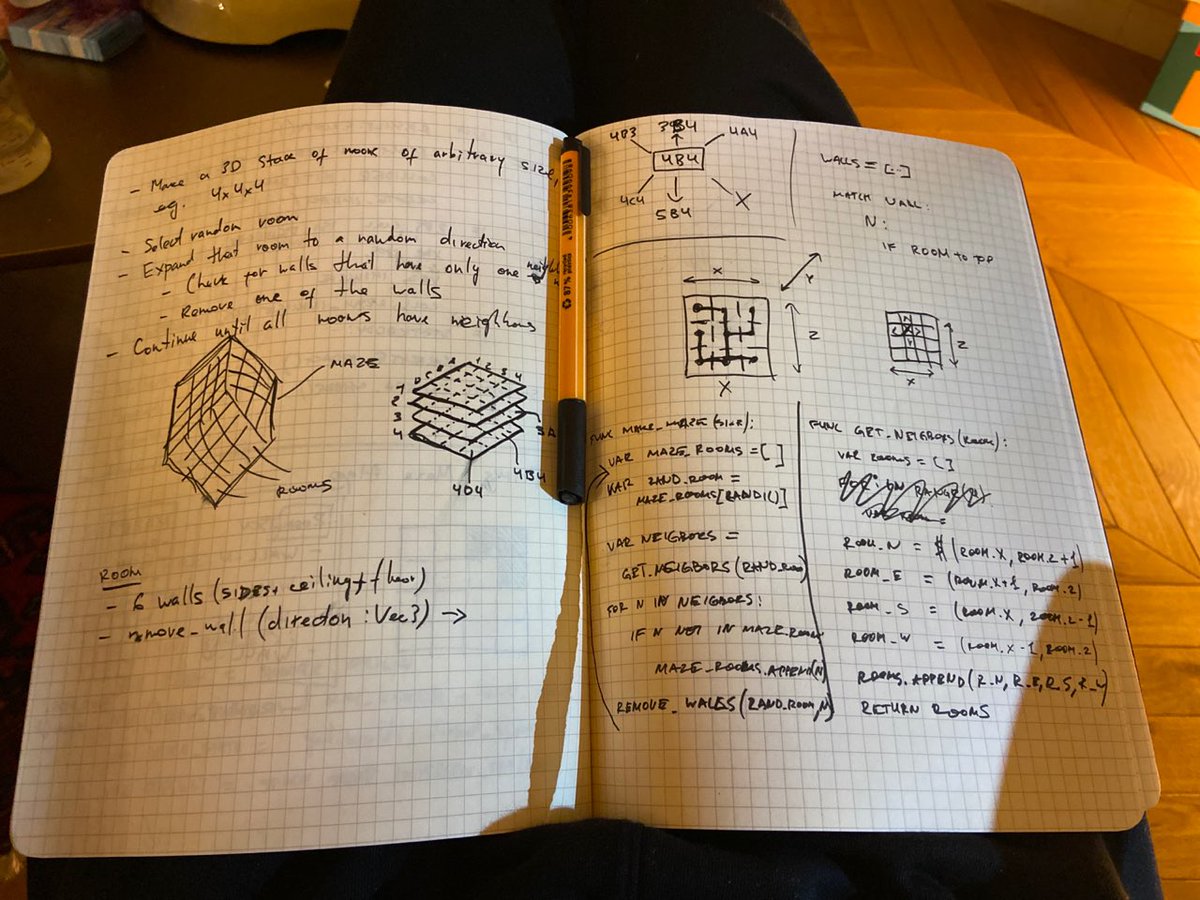 - Make a 3D stack of rooms of arbitrary size,
eg. 4x4x4
- Select random room
- Expand that room to a random direction
- Check for walls that have only one neigh
- Remove one of the walls
- Continue until all rooms have neighbours
MAZE
ROOMS
D C B A 1 2 3 4
1
2
3
4
3A
4B4
4D4
ROOM
- 6 walls (SIDES + ceiling + floor)
- remove_wall (direction : Vec3) →
4B3 3B4 4A4
4B4
4C4 5B4 X
WALLS = [..]
MATCH WALL:
N:
IF ROOM TO TOP
X
Y
Z
X
N
Z
X
FUNC MAKE_MAZE(SIZE):
VAR MAZE_ROOMS = []
VAR RAND_ROOM =
MAZE_ROOMS[RANDI()]
VAR NEIGBORS =
GET_NEIGBORS(RAND_ROO)
FOR N IN NEIGBORS:
IF N NOT IN MAZE_ROOM
MAZE_ROOMS.APPEND(N)
REMOVE_WALLS(RAND_ROOM,N)
FUNC GET_NEIGBORS(ROOM):
VAR ROOMS = []
ROOM_N = (ROOM.X, ROOM.Z+1)
ROOM_E = (ROOM.X+1, ROOM.Z)
ROOM_S = (ROOM.X, ROOM.Z-1)
ROOM_W = (ROOM.X-1, ROOM.Z)
ROOMS.APPEND(R_N, R_E, R_S, R_W)
RETURN ROOMS